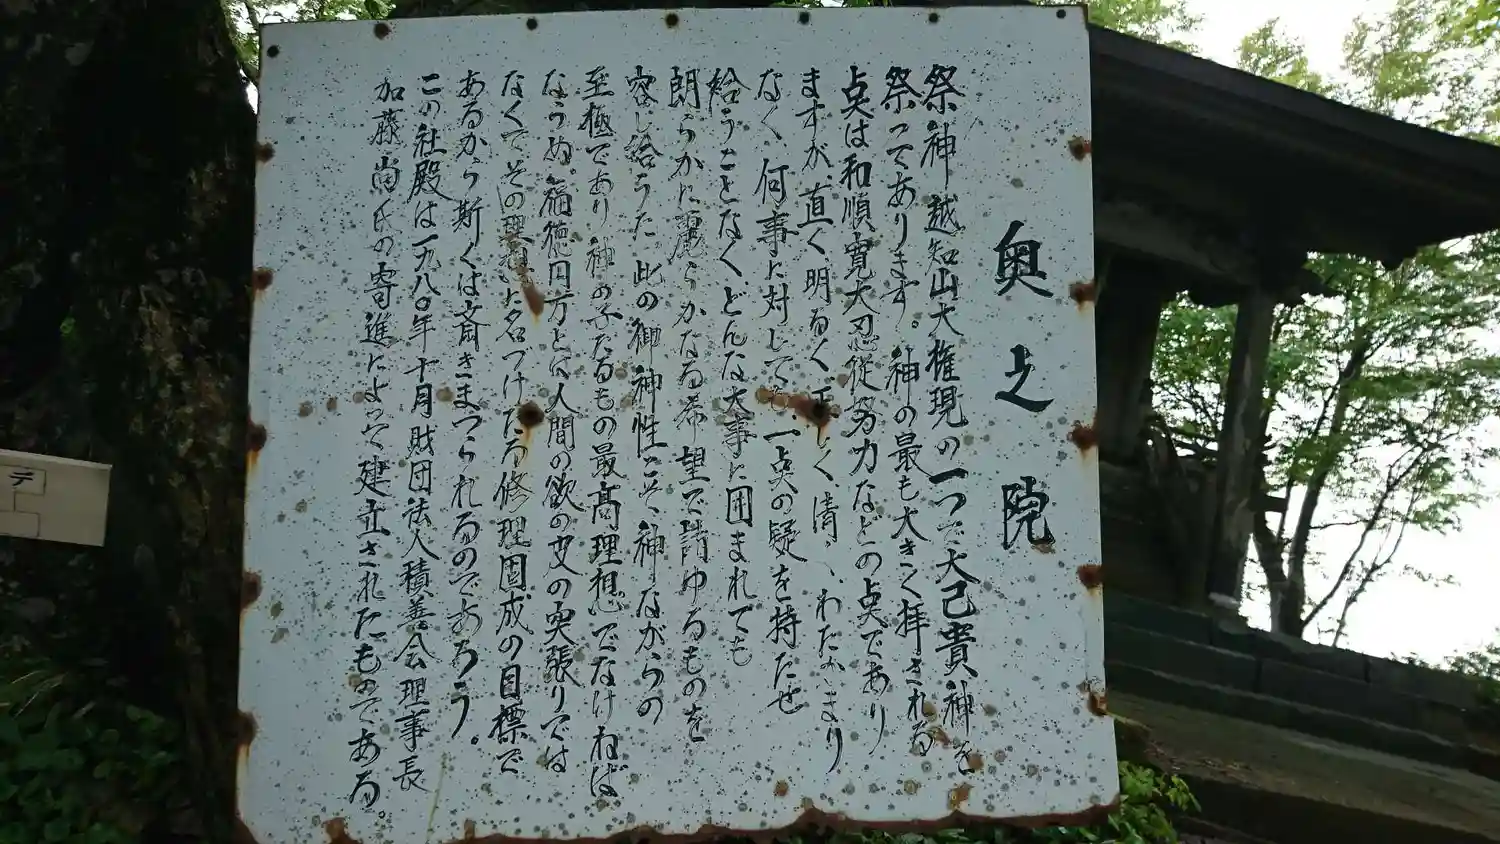 奥之院
祭神越知山大権現の一つで大己貴神を
祭ってあります。神の最も大きく拝される
点は和順寛大忍従努力などの点であり
ますが、直く明るく正しく清くわたかまり
なく、何事に対しても、一点の疑を持たせ
給うことなく、どんな大事に囲まれても
朗らかに麗らかなる希望で請ゆるものを
容じ給うた此の御神性こそ神ながらの
至極であり神の子たるもの最高理想でなければ
ならぬ。福徳円方とは人間の欲の皮の突張りでは
なくてその理想に名づけたる修理固成の目標で
あるから斯くは斎きまつられるのであろう。
この社殿は一九八〇年十月財団法人積善会理事長
加藤尚氏の寄進によって建立されたものである。
デ